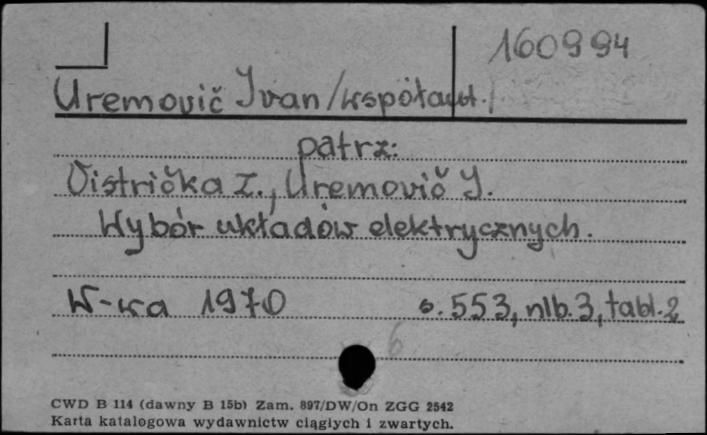 160994
Uremovič Ivan /współaut./
patrz:
Vistrička Z., Uremovič I.
Wybór układów elektrycznych.
W-wa 1970 s. 553, nlb. 3, tabl. 2
6
CWD B 114 (dawny B 15b) Zam. 897/DW/On ZGG 2542
Karta katalogowa wydawnictw ciągłych i zwartych.